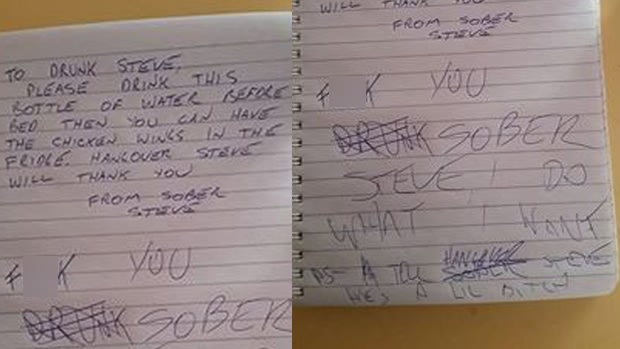 TO DRUNK STEVE,
PLEASE DRINK THIS
BOTTLE OF WATER BEFORE
BED THEN YOU CAN HAVE
THE CHICKEN WINGS IN THE
FRIDGE. HANGOVER STEVE
WILL THANK YOU
FROM SOBER
STEVE
F K YOU
DRUNK SOBER
WILL THANK YOU
FROM SOBER
STEVE
F K YOU
DRUNK SOBER
STEVE, I DO
WHAT I WANT
PS- TELL HANGOVER SOBER STEVE
HE'S A LIL BITCH